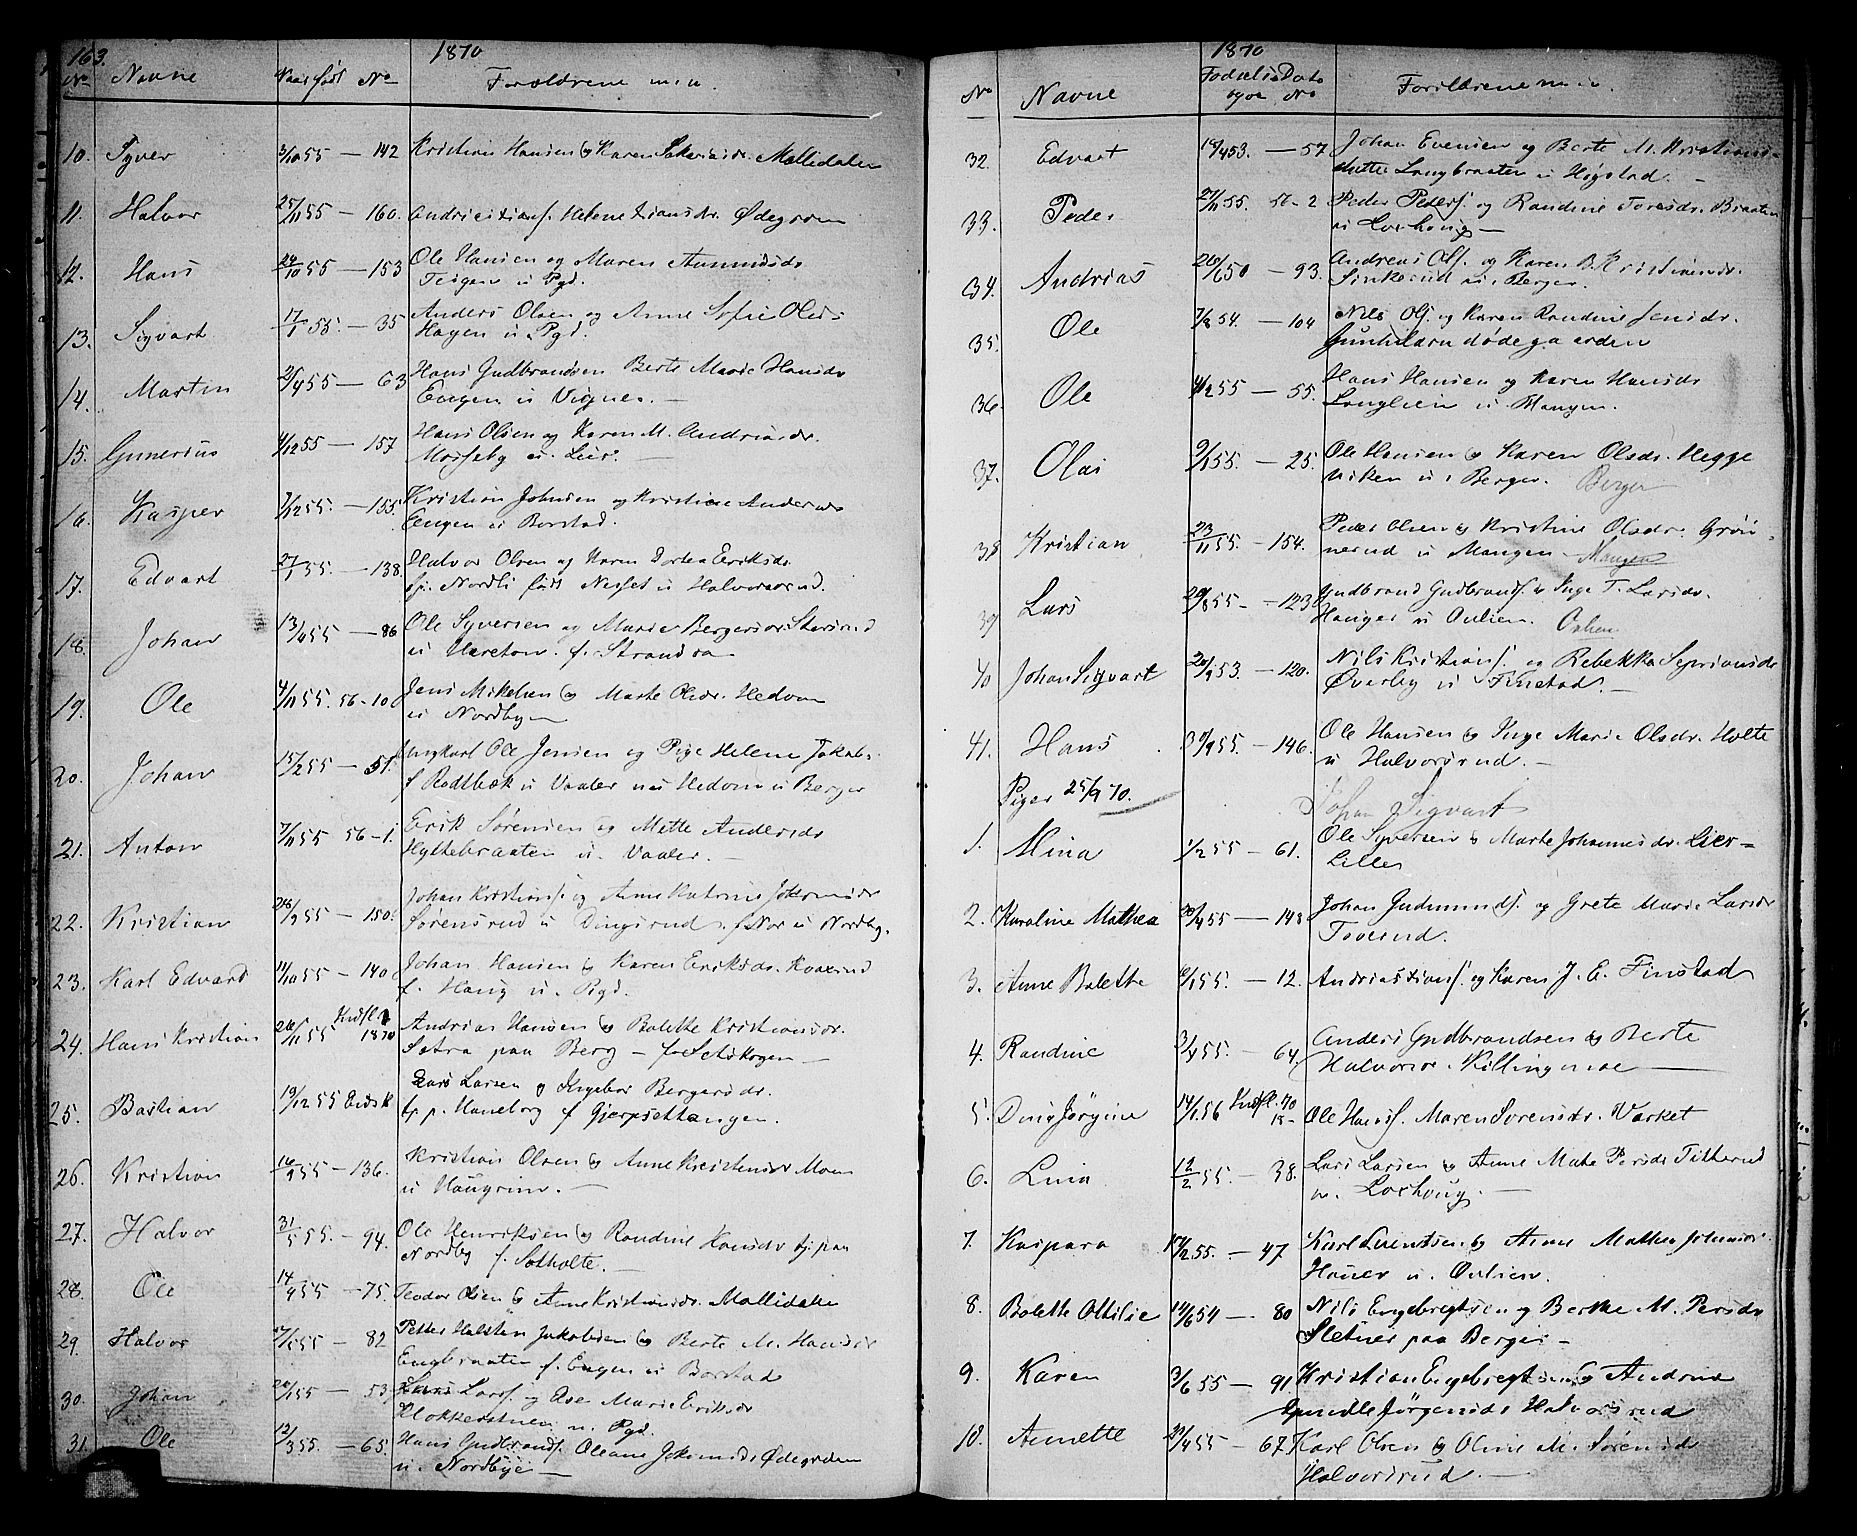 163.
1870
No Navne Naar født No Forældrene m. v.
10. Syver 3/10 55 — 142 Kristian Hansen & Karen Sakariasdr. Mallidalen
11. Halvor 25/11 55 — 160. Andreas Hansf. Helene Hansdr. Ødegaarn
12. Hans 24/10 55 — 153 Ole Hansen og Maren Amundsdr
Teigen u Pgd.
13. Sigvart 17/1 55. — 35 Anders Olsen og Anne Sofie Olsdr
Hagen u Pgd.
14. Martin 21/4 55 — 63 Hans Gudbrandsen Berte Marie Hansdr
Engen u Vigner. —
15. Gunerius 4/12 55 — 157 Hans Olsen og Karen M. Andreasdr.
Mosseby u. Lier. —
16. Kasper 7/12 55. — 155 Kristian Johnsen og Kristiane Andersdr
Engen u Borstad.
17. Edvart 27/1 55. — 138. Halvor Olsen og Karen Dortea Eriksdr.
bp. Nordli født Nesset u Halvorsrud.
18. Johan 13/4 55 — 86 Ole Syversen og Marie Bergersdr
u Hareton. f. Strandra
19. Ole 4/11 55. 56-10 Jens Mikelsen & Marte Olsdr. Hedom
u Nordbyen
20. Johan 15/2 55 — 51. Ungkarl Ole Jensen og Pige Helene Jakobs.
f Rødsbæk u Vaaler nu Hedom u Berger
21. Anton 7/11 55 56-1. Erik Sørensen og Mette Andersdr
Hyttebraaten u. Vaaler. —
22. Kristian 28/9 55 — 150. Johan Kristiansf. og Anne Katrine
Sørensrud u Dingsrud. f Nor u Nordby.
23. Karl Edvard 11/10 55 — 140 Johan Hansen & Karen Eriksdr. Kvaxrud
f. Haug u. Pgd.
24. Hans Kristian 26/11 55 1870 Andrias Hansen & Bolette Kristiansdr.
Setra paa Berg — f. Setskogen —
25. Bastian 19/12 55 Eidsk Lars Larsen & Ingebor Bergersdr.
bp p. Haneborg f Gjerpsettangen.
26. Kristian 16/9 55 — 136. Kristian Olsen & Anne Kristensdr Moen
u Haugrim. —
27. Halvor 31/5 55. — 94. Ole Henriksen & Randine Hansdr bp paa
Nordby f. Sotholte. —
28. Ole 14/4 55 — 75. Teodor Olsen & Anne Kristiansdr. Mallidalen
29. Halvor 7/5 55 — 82 Petter Halsten Jakobsen & Berte M. Hansdr
Engbraaten f. Engen u Borstad
30. Johan 20/1 55 — 53. Lars Larsf. og Eve Marie Eriksdr
Klokkerstuen u. Pgd.
31. Ole 12/3 55. — 65. Hans Gudbrandsf. Oleane Ødegarden
u. Nordbye —
1870
No Navne Fødsels Dato
og No Forældrene m. v.
32. Edvart 18/4 53. — 57 Johan Evensen og Berte M. Kristians-
datter Langbraaten u Høgstad. —
33. Peder 27/11 55. 56-2 Peder Peders. og Randine Toresdr. Braaten
u Loxhoug —
34. Andrias 26/6 50 — 93. Andreas Olsf. og Karen B. Kristiansdr.
Sinkerud u. Berger.
35. Ole 7/2 54. — 104 Nils Olsf. og Karen Randine Jensdr.
Gunhildrudødegaarden
36. Ole 4/2 55 — 55. Hans Hansen og Karen Hansdr
Langlien u Mangen.
37. Olai 9/1 55. — 25. Ole Hansen & Karen Olsdr. Hegge
viken u. Berger. Berger
38 Kristian 23/11 55. — 154. Peder Olsen & Kristine Olsdr. Grøn-
nerud u Mangen Mangen
39 Lars 20/8 55 — 123 Gudbrand Gudbrandsf. & Inge T. Larsdr.
Hanger u Oulien. Oulien
40 Johan Sigvart 26/9 53 — 120. Nils Kristiansf. og Rebekka Syvriansdr
Øverby u Finstad. —
41. Hans 30/9 55. — 146. Ole Hansen & Inge Marie Olsdr. Holte
u Halvorsrud. —
Piger 25/9 70. Johan Sigvart
1. Mina 1/2 55 — 61. Ole Syversen & Marte Johannesdr. Lier-
Lille
2. Karoline Mathea 30/4 55 — 148 Johan Gudmunds. og Grete Marie Larsdr
Toverud.
3. Anne Bolette 6/1 55. — 12. Andrias Hansf. og Karen J. E. Finstad
4. Randine 3/4 55. — 64. Anders Gudbrandsen & Berte
Halvorsdr. Killingmoe —
5. Dina Jørgine 14/1 56 70 Ole Hansf. Maren Sørensdr. Varket
6. Lina 12/2 55. — 38. Lars Larsen & Anne Mate Persdr Titterud
u. Loxhoug. —
7. Kaspara 14/2 55. — 47 Karl Lurntsen & Anne Mathea
Hauer u. Oulien.
8. Bolette Ottilie 14/6 54 — 80 Nils Engebregtsen og Berthe M. Persdr
Sletner paa Berger —
9. Karen 3/6 55 — 91 Kristian Engebregtsen & Andrine
Gunille Jørgensdr Halvorsrud
10. Annette 29/4 55 — 67. Karl Olsen & Oline M. Sørensdr
Halvorsrud. —